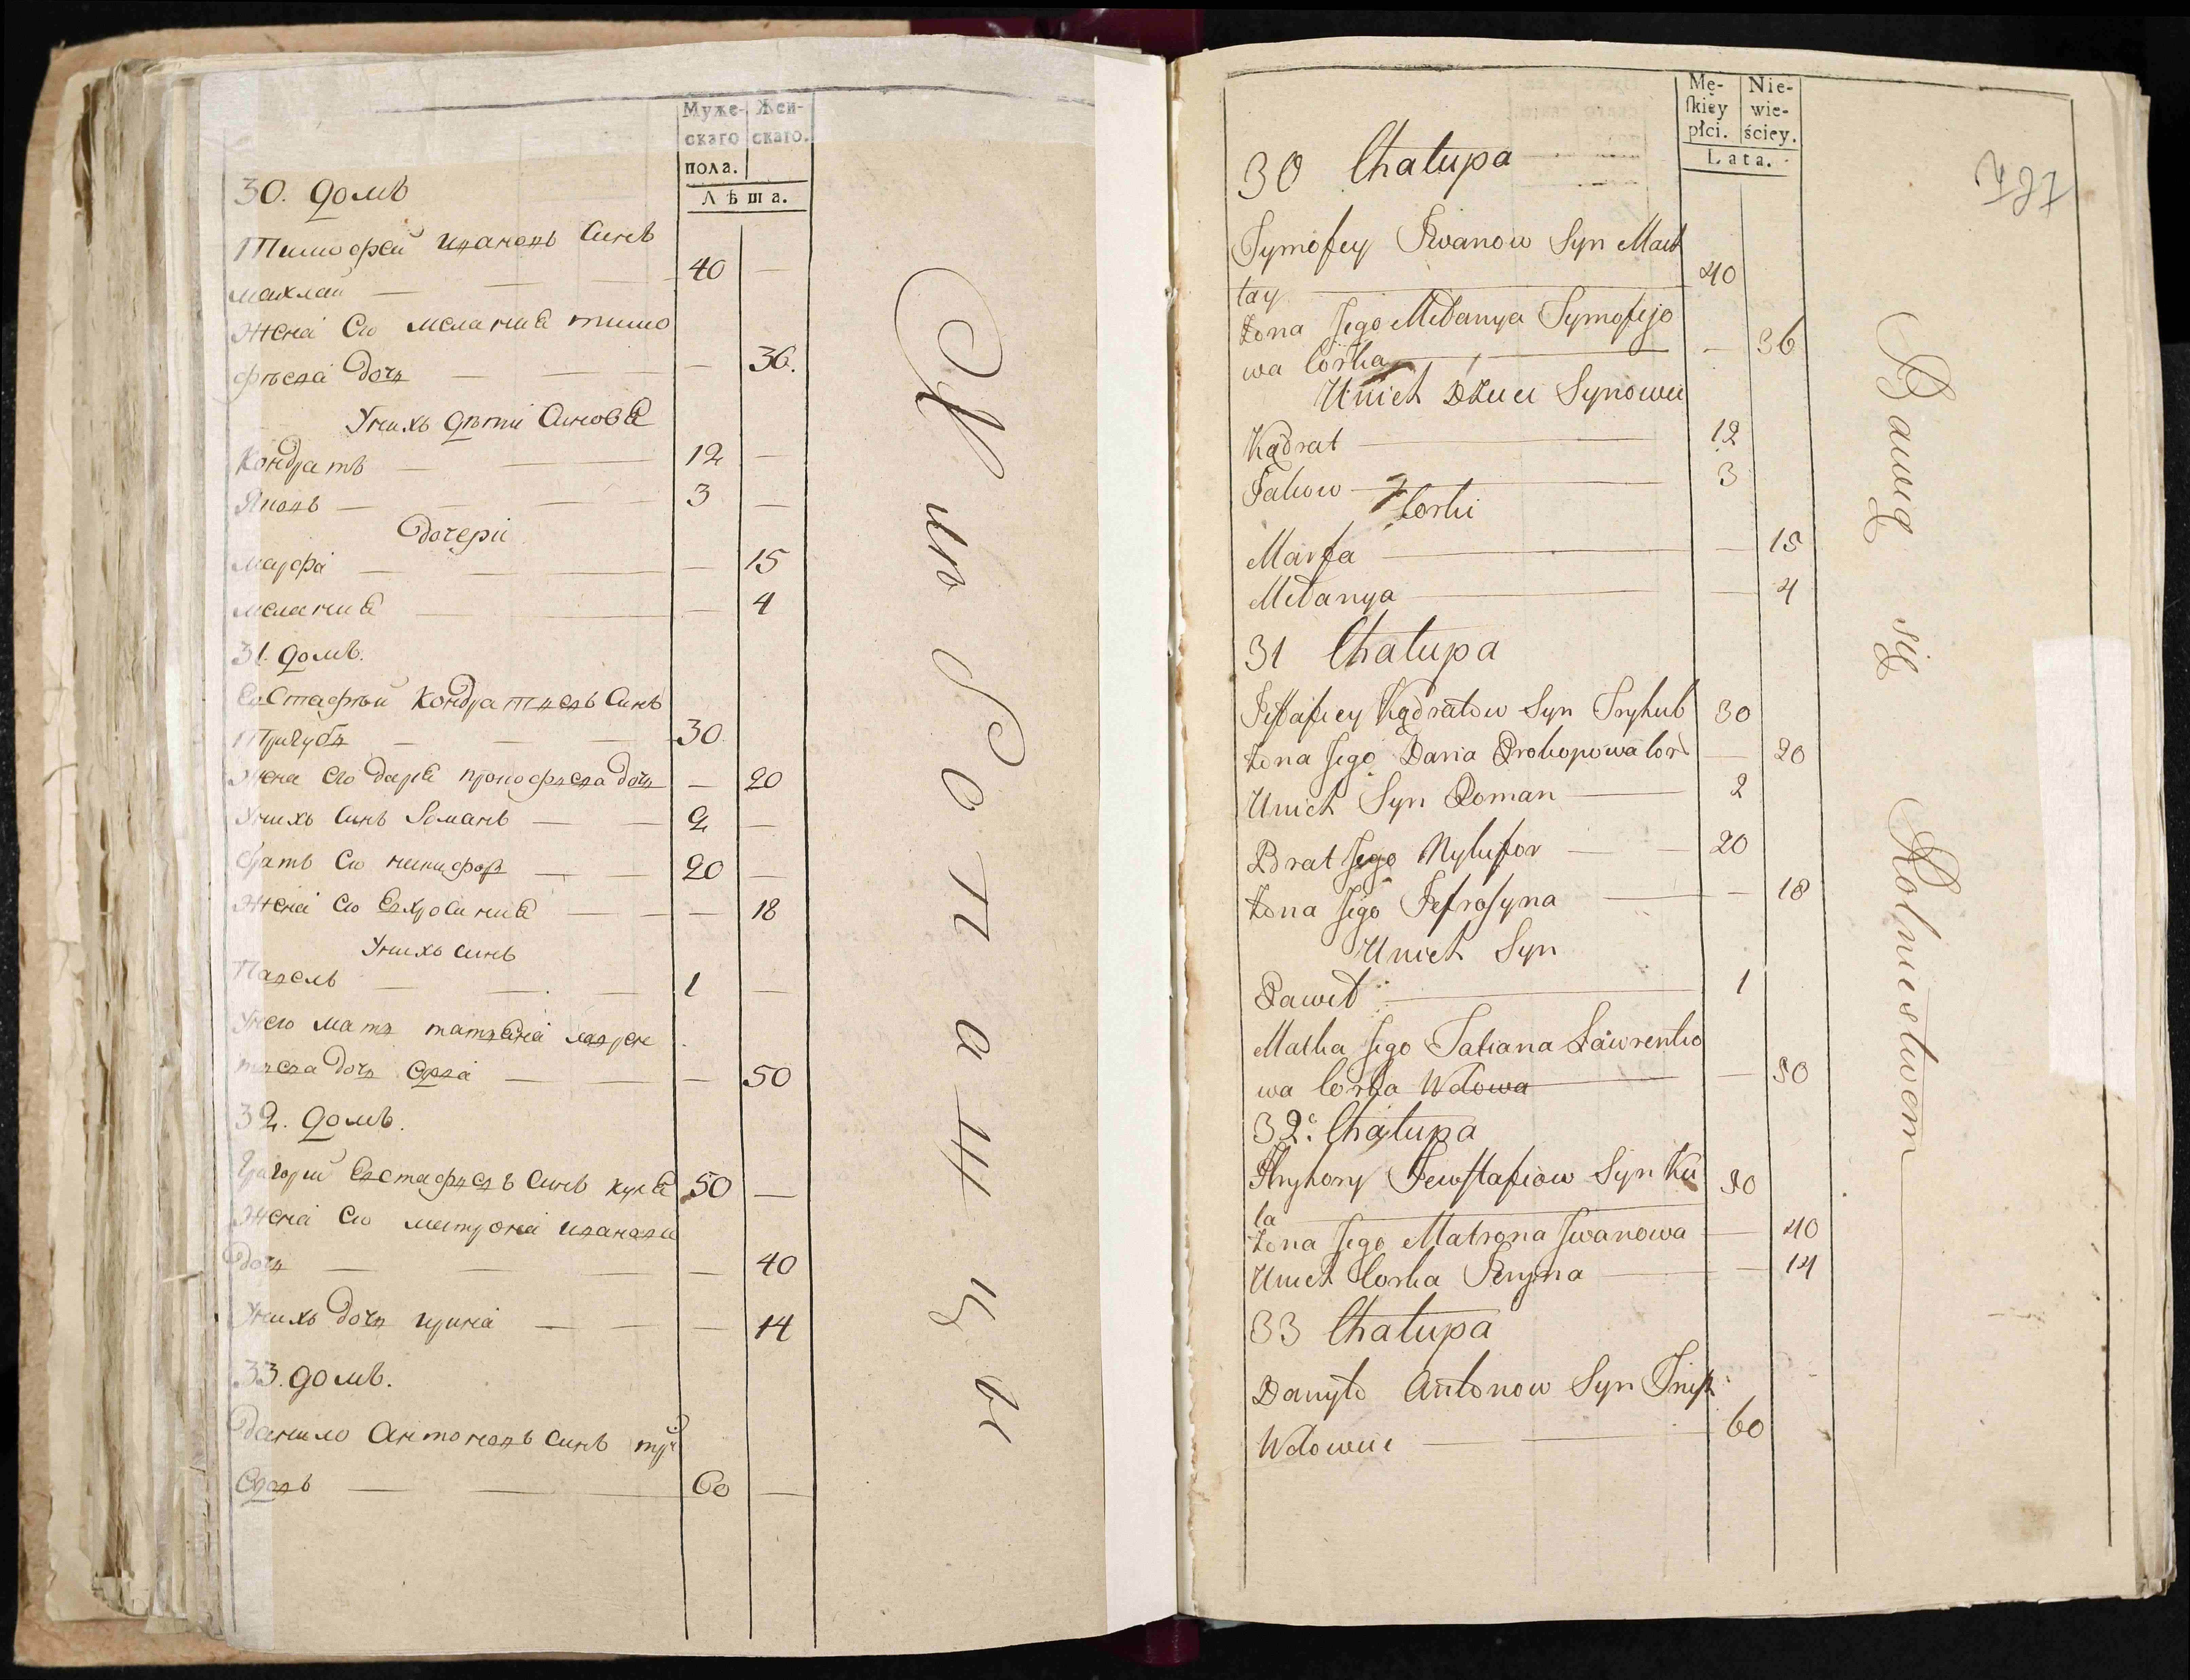 Муже-
скаго
пола.
Жен-
скаго.
Лѣта.
30. домъ
Тимофей ивановъ Синъ
махлай 40
жена Его меланиѣ тимо
фѣева дочь 36.
Унихъ дѣти Синовѣ
Кондратъ 12
Яковъ 3
дочери
марфа 15
меланиѣ 4
31. домъ.
Евстафѣй Кондратьевъ Синъ
Тригубъ 30
жена Его дарѣ дочь 20
Унихъ Синъ Романъ 2
братъ Его никифоръ 20
жена Его Евхросиниѣ 18
Унихъ синъ
Павелъ 1
Унего мать татьѣна лаврен
тьева дочь вдва 50
32. домъ.
Григорий Евстафьевъ Синъ кулѣ 50
жена Его митрона иванова
дочь 40
Унихъ дочь ирина 14
33. домъ.
данило Антоновъ Синъ
вдовъ 60
Męskiey
płci.
Niewieściey.
Lata.
30 Chałupa
Tymofey Iwanow Syn Mach
łay 40
żona Jego Mełanya Tymofiejo
wa Corka 36
Unich Dzieci Synowie
Kądrat 12
Jakow 3
Corki
Marfa 15
Mełanya 4
31 Chałupa
Jestafiey Kądratow Syn Tryhub 30
żona Jego Daria Prokopowa Cor 20
Unich Syn Roman 2
Brat Jego Nykifor 20
żona Jego Jefrosyna 18
Unich Syn
Paweł 1
Matka Jego Tatiana Ławrentio
wa Corka Wdowa 50
32. Chałupa
Hryhory Jewstafiow Syn Ku
la 50
żona Jego Matrona Jwanowa 40
Unich Corka Iryna 14
33 Chałupa
Danyło Antonow Syn
Wdowiec 60
Bawią się Rolnictwem